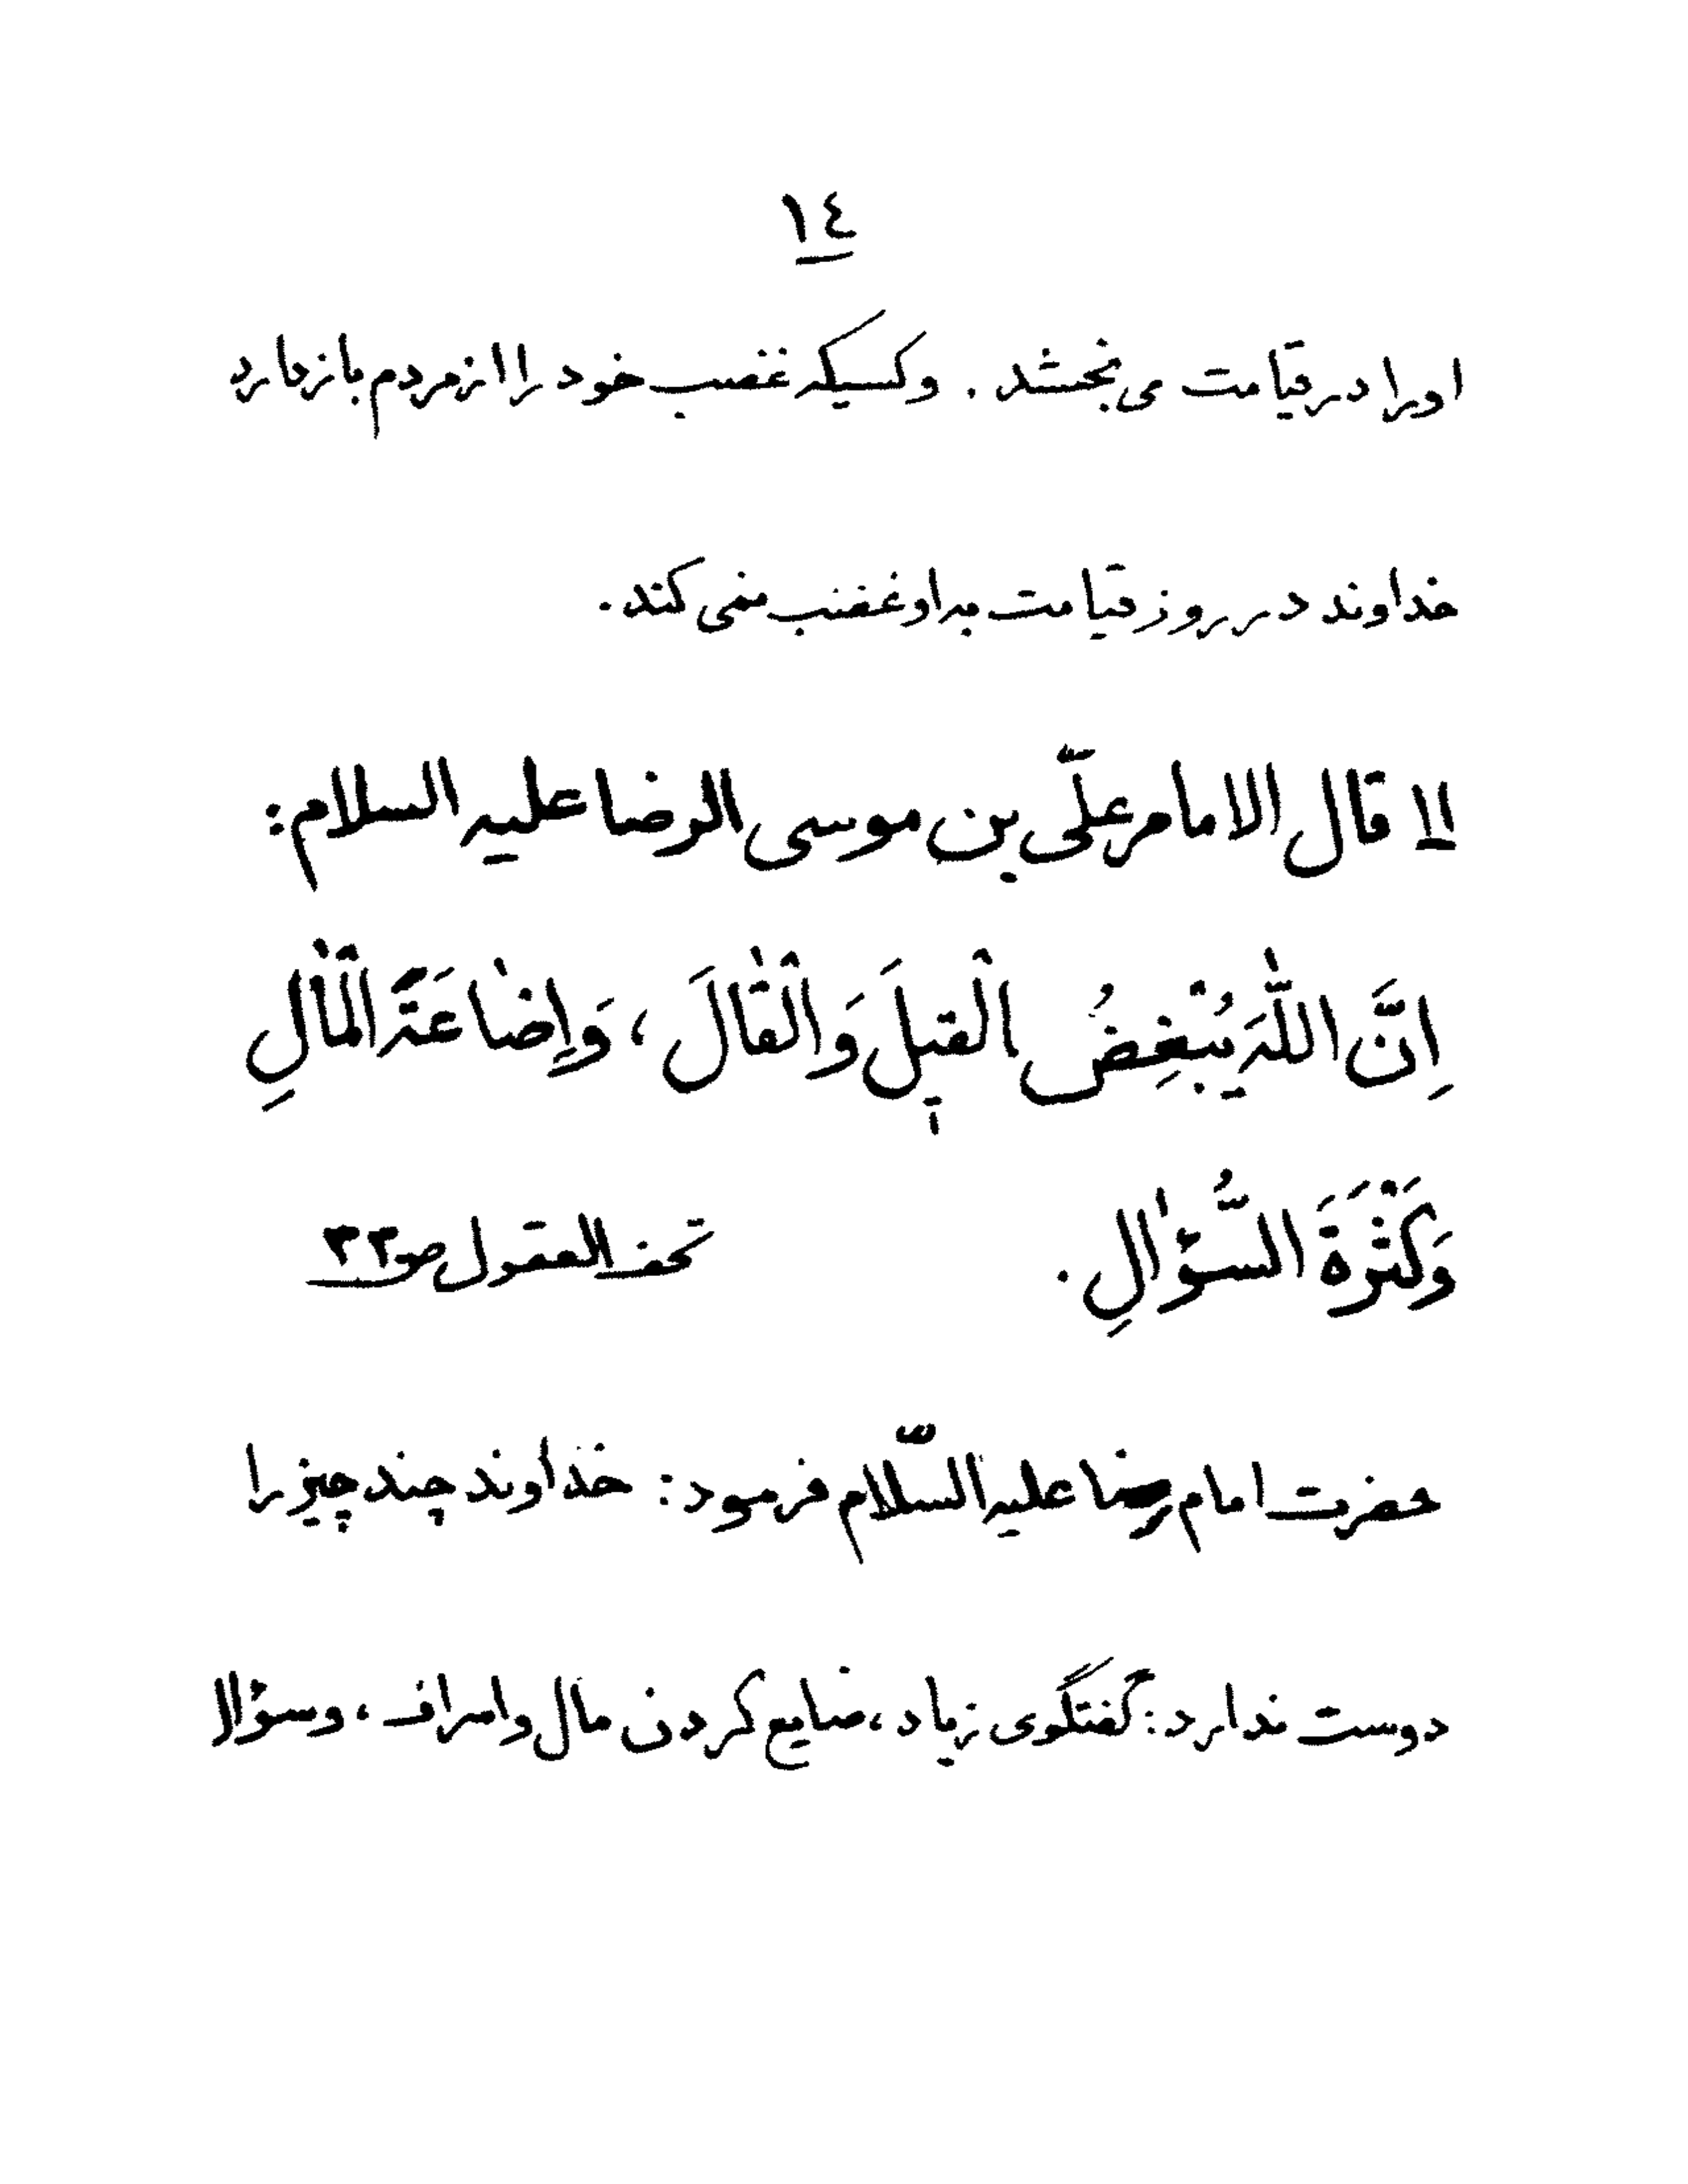 ١٤
اورا در قیامت می بخشد . و کسیکه غضب خود را از مردم باز دارد
خداوند در روز قیامت به او غضب نمی کند .
١١ قال الامام علیّ بن موسی الرضا علیه السلام :
اِنَّ اللّٰهَ یُبْغِضُ الْقیٖلَ وَ الْقٰالَ ، وَ اِضٰاعَةَ الْمٰالِ
وَ کَثْرَةَ السُّؤٰالِ .
تحف العقول ص
حضرت امام رضا علیه السّلام فرمود : خداوند چند چیز را
دوست ندارد : گفتگوی زیاد ، ضایع کردن مال و اسراف ، و سؤالا